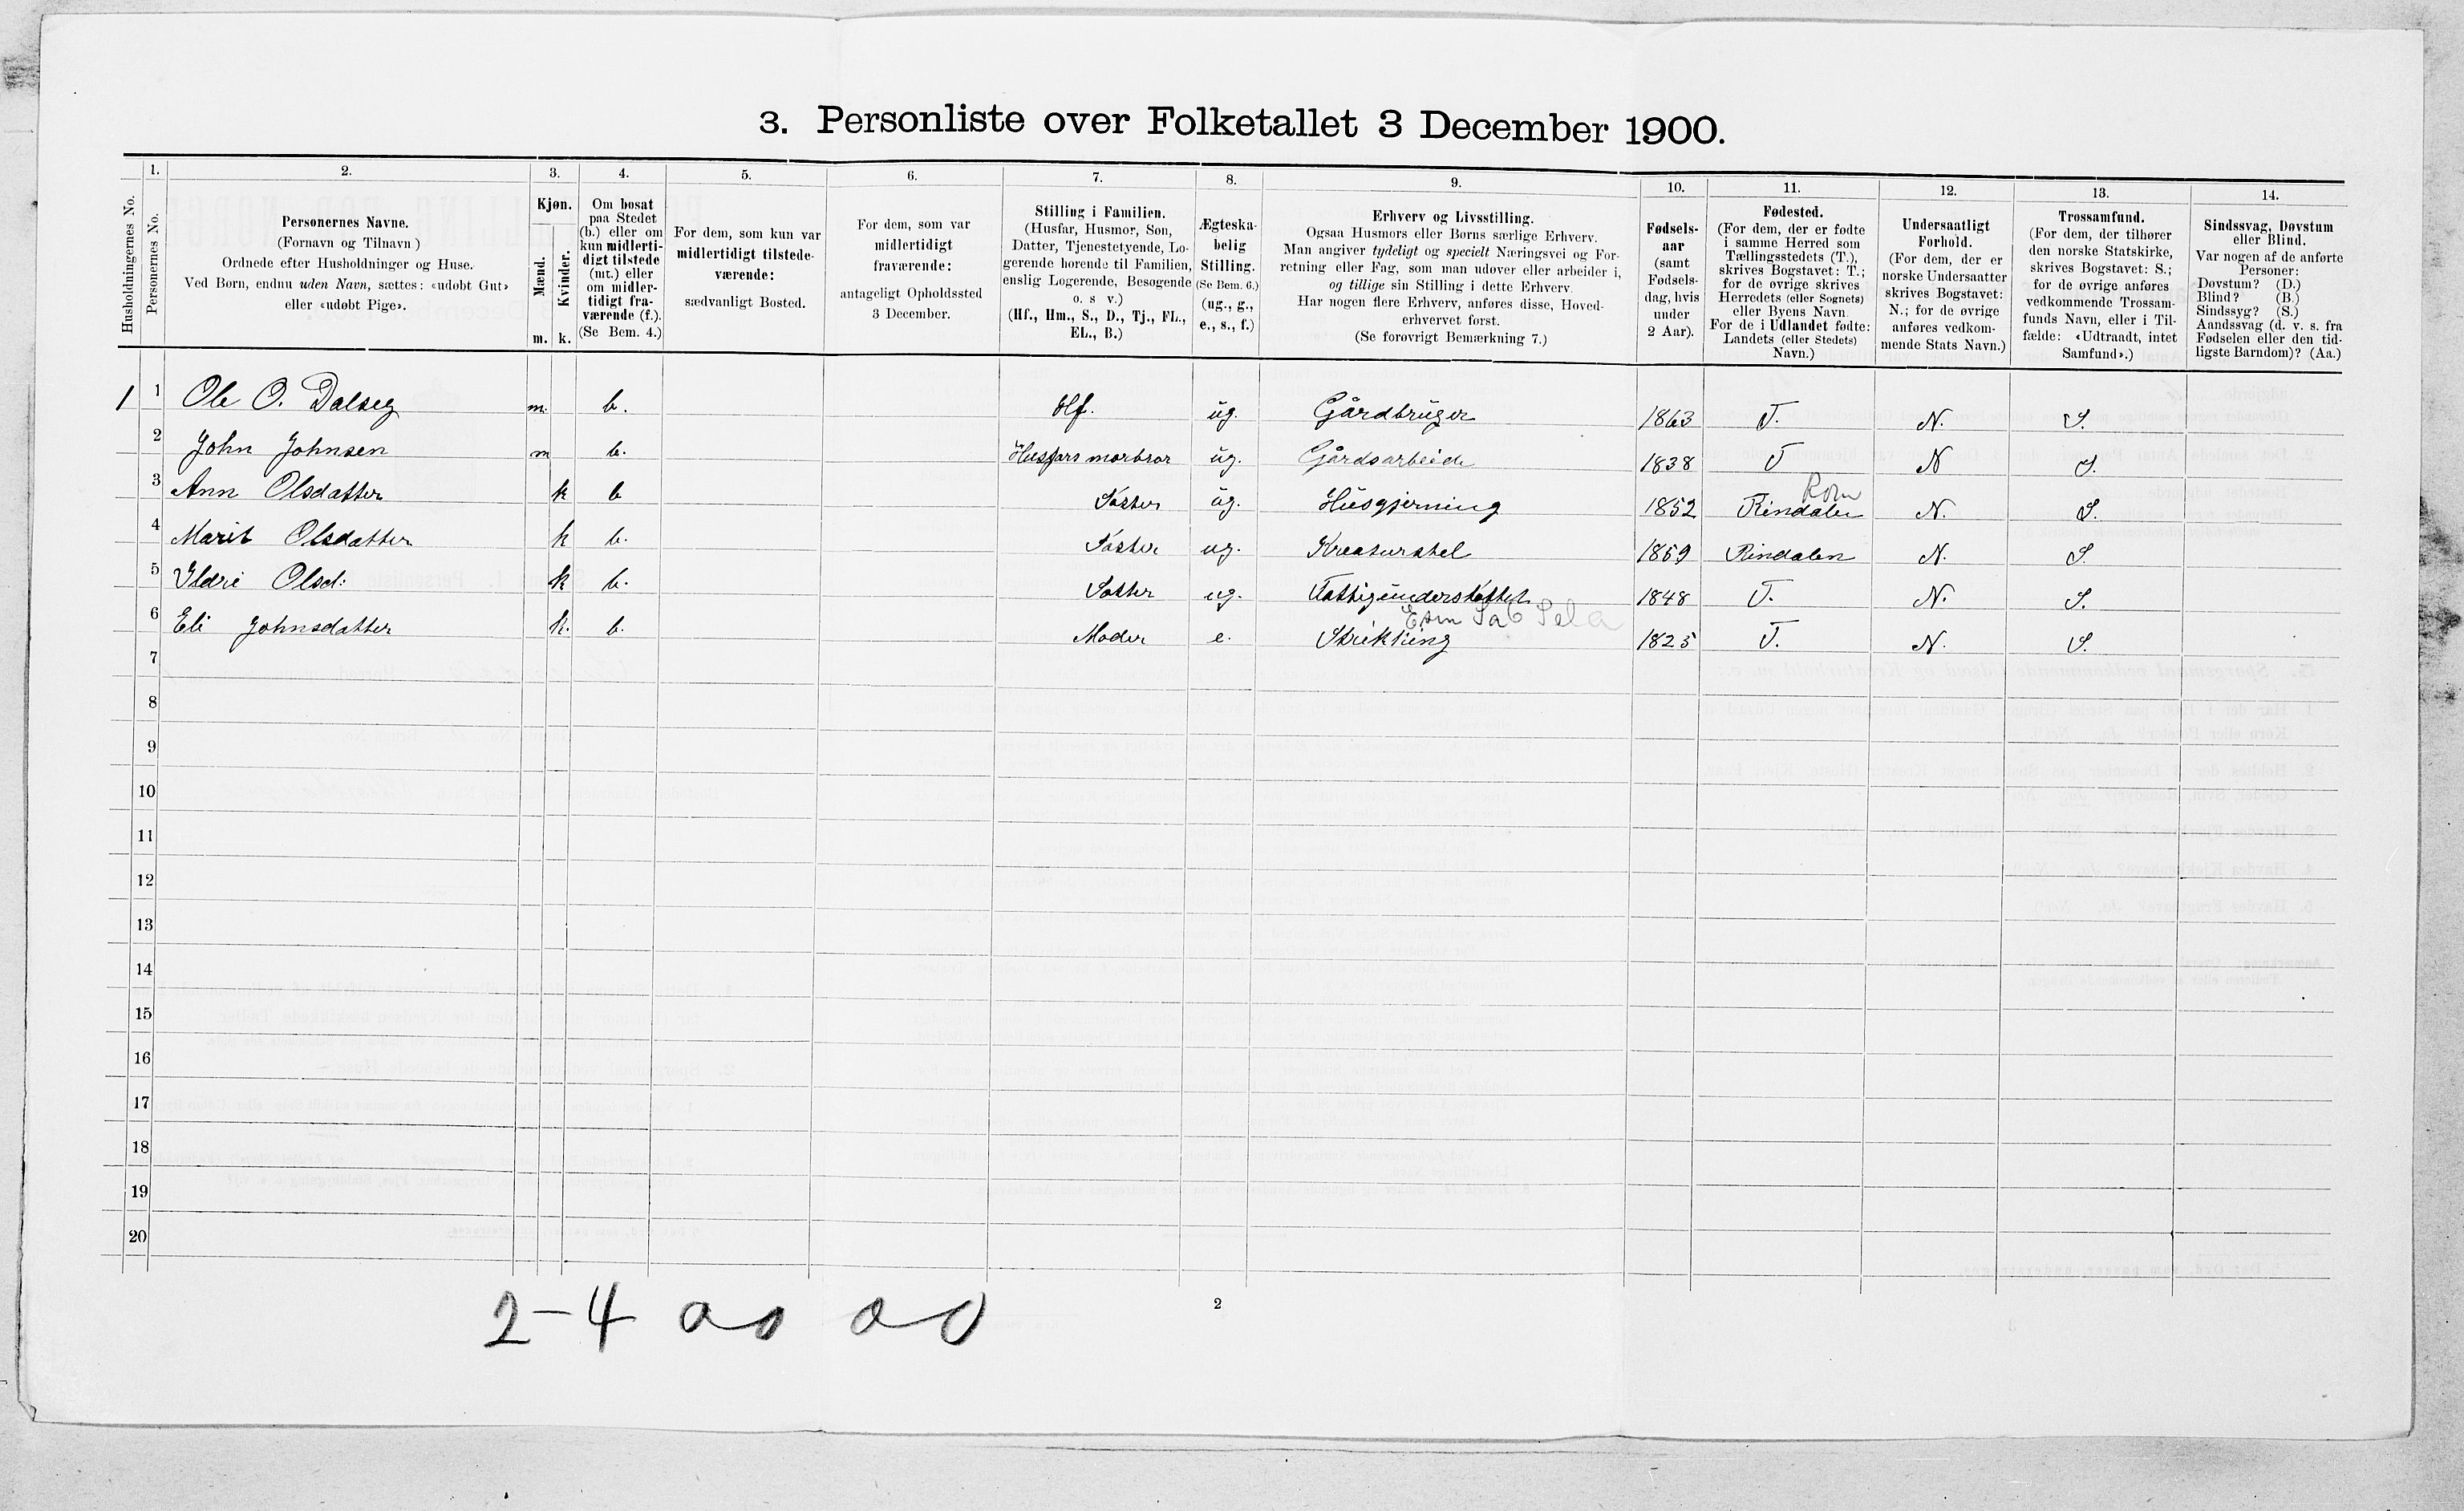 3. Personliste over Folketallet 3 December 1900.
Husholdningernes No.
1.
Personernes No.
2.
Personernes Navne.
(Fornavn og Tilnavn)
Ordnede efter Husholdninger og Huse.
Ved Børn, endnu uden Navn, sættes: «udøbt Gut»
eller «udøbt Pige».
3.
Kjøn.
Mænd.
Kvinder.
m. k.
4.
Om bosat
paa Stedet
(b.) eller om
kun midlerti-
digt tilstede
(mt.) eller
om midler-
tidigt fra-
værende (f.).
(Se Bem. 4.)
5.
For dem, som kun var
midlertidigt tilstede-
værende:
sædvanligt Bosted.
6.
For dem, som var
midlertidigt
fraværende:
antageligt Opholdssted
3 December.
7.
Stilling i Familien.
(Husfar, Husmor, Søn,
Datter, Tjenestetyende, Lo-
gerende hørende til Familien,
enslig Logerende, Besøgende
o. s v.)
(Hf., Hm., S., D., Tj., FL.,
EL., B.)
8.
Ægteska-
belig
Stilling.
(Se Bem. 6.)
(ug., g.,
e., s., f.)
9.
Erhverv og Livsstilling.
Ogsaa Husmors eller Børns særlige Erhverv.
Man angiver tydeligt og specielt Næringsvei og For-
retning eller Fag, som man udøver eller arbeider i,
og tillige sin Stilling i dette Erhverv.
Har nogen flere Erhverv, anføres disse, Hoved-
erhvervet først.
(Se forøvrigt Bemærkning 7.)
10.
Fødsels-
aar
(samt
Fødsels-
dag, hvis
under
2 Aar).
11.
Fødested.
(For dem, der er fødte
i samme Herred som
Tællingsstedets (T.),
skrives Bogstavet: T.;
for de øvrige skrives
Herredets (eller Sognets)
eller Byens Navn.
For de i Udlandet fødte:
Landets (eller Stedets)
Navn.)
12.
Undersaatligt
Forhold.
(For dem, der er
norske Undersaatter
skrives Bogstavet:
N.; for de øvrige
anføres vedkom-
mende Stats Navn.)
13.
Trossamfund.
(For dem, der tilhører
den norske Statskirke,
skrives Bogstavet: S.;
for de øvrige anføres
vedkommende Trossam-
funds Navn, eller i Til-
fælde: «Udtraadt, intet
Samfund».)
14.
Sindssvag, Døvstum
eller Blind.
Var nogen af de anførte
Personer:
Døvstum? (D.)
Blind? (B.)
Sindssyg? (S.)
Aandssvag (d. v. s. fra
Fødselen eller den tid-
ligste Barndom)? (Aa.)
1 1 Ole O. Dalseg m. b. Hf. ug. Gårdbruger 1863 T. N. S.
2 John Johnsen m b. Husfars morbror ug. Gårdsarbeide 1838 T N S.
3 Ann Olsdatter k b Søster ug. Husgjerning 1852 Rindalen N. S.
4 Marit Olsdatter k b. Søster ug. Kreaturstel 1859 Rindalen N. S.
5 Ildri Olsd: k b. Søster ug. Fattigunderstøttet 1848 T. N. S.
6 Eli Johnsdatter k. b. Moder e. Strikking 1825 T. N. S.
7
8
9
10
11
12
13
14
15
16
17
18
19
20
2-4
2